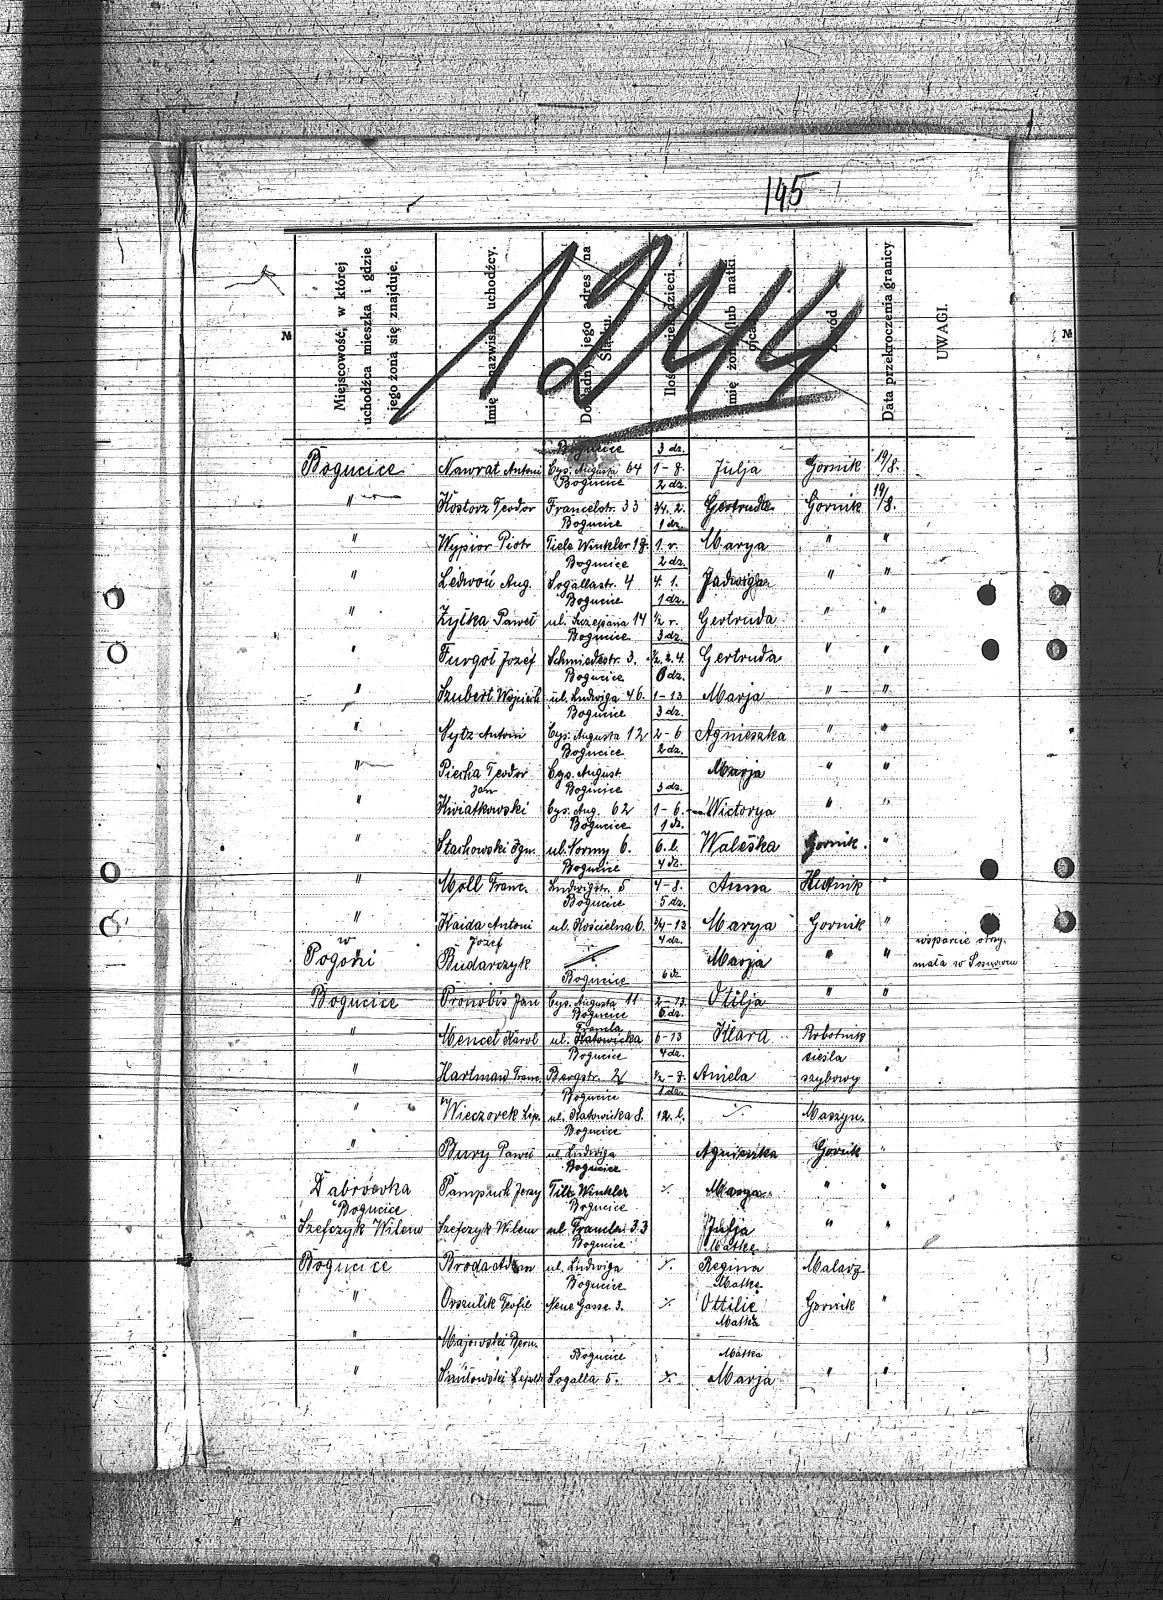 145
1244
№
Miejscowość, w której uchodźca mieszka i gdzie jego żona się znajduje.
Imię nazwisko uchodźcy.
Dokładny jego adres na Śląsku.
Ilość dzieci.
Imię żony lub matki ojca
Zawód
Data przekroczenia granicy
UWAGI.
№
Bogucice 3 dz.
Bogucice Nawrat Antoni Cys. Augusta 64 1-8. Julja Gornik 19/8.
Bogucice 2 dz.
" Kostorz Teodor Francelstr. 33 3/4. 2. Gertruda Gornik 19/8.
Bogucice 1 dz.
" Wypior Piotr Tiele Winkler 18. 1. r. Marya " "
Bogucice 2 dz.
" Ledwoń Aug. Logallastr. 4 4. 1. Jadwiga " "
Bogucice 1 dz.
" Zyłka Paweł ul. Szczepana 14 1/2 r. Gertruda " "
Bogucice 3 dz.
" Furgoł Jozef Schmiedestr. 3. 1/2. 2. 4. Gertruda " "
Bogucice 6 dz.
" Szubert Wojciech ul. Ludwiga 46. 1-13 Marja " "
Bogucice 3 dz.
" Sytz Antoni Cys. Augusta 12 2-6 Agnieszka " "
Bogucice 2 dz.
" Piecha Teodor Cys. August. Marja " "
Jan Bogucice 3 dz.
" Kwiatkowski Cys. Aug. 62 1-6. Wictorya " "
Bogucice 1 dz.
" Stachowski Zgm. ul. Normy 6. 6. l. Waleska Gornik. "
Bogucice 4 dz.
" Moll Franc. Ludwigstr. 5 4-8. Anna Hutnik "
Bogucice 5 dz.
" Kaida Antoni ul. Kościelna 6. 3/4-13 Marya Gornik "
w Jozef 4 dz. wsparcie otrzy.
Pogoni Budarczyk Marja " " mała w Sosnowcu
Bogucice 6 dz.
Bogucice Pronobis Jan Cys. Augusta 11 2-13. Otilja " "
Bogucice 6 dz.
Francla
" Mencel Karol ul. Katowicka 6-13 Klara Robotnik
Bogucice 4 dz. cieśla
" Hartman Franc. Bergstr. 2 1/2-8. Aniela szybowy "
Bogucice 1 dz.
" Wieczorek Lip. ul. Katowicka 8. 12. l. ./. Maszyn.
Bogucice
" Bury Paweł ul. Ludwiga Agnieszka Gornik "
Bogucice
Dąbrówka Pampuch Jerzy Tile Winkler ./. Marya " "
Bogucice Bogucice
Szefczyk Wilem Szefczyk Wilem ul. Francla 33 Julja " "
Bogucice Matka
Bogucice Broda Adam ul. Ludwiga ./. Regina Malarz
Bogucice Matka
" Orszulik Teofil Neue Gasse 3. ./. Ottilie Gornik "
Matka
" Majowski Bern.
Bogucice Matka
" Logalla 5. ./. Marja " "